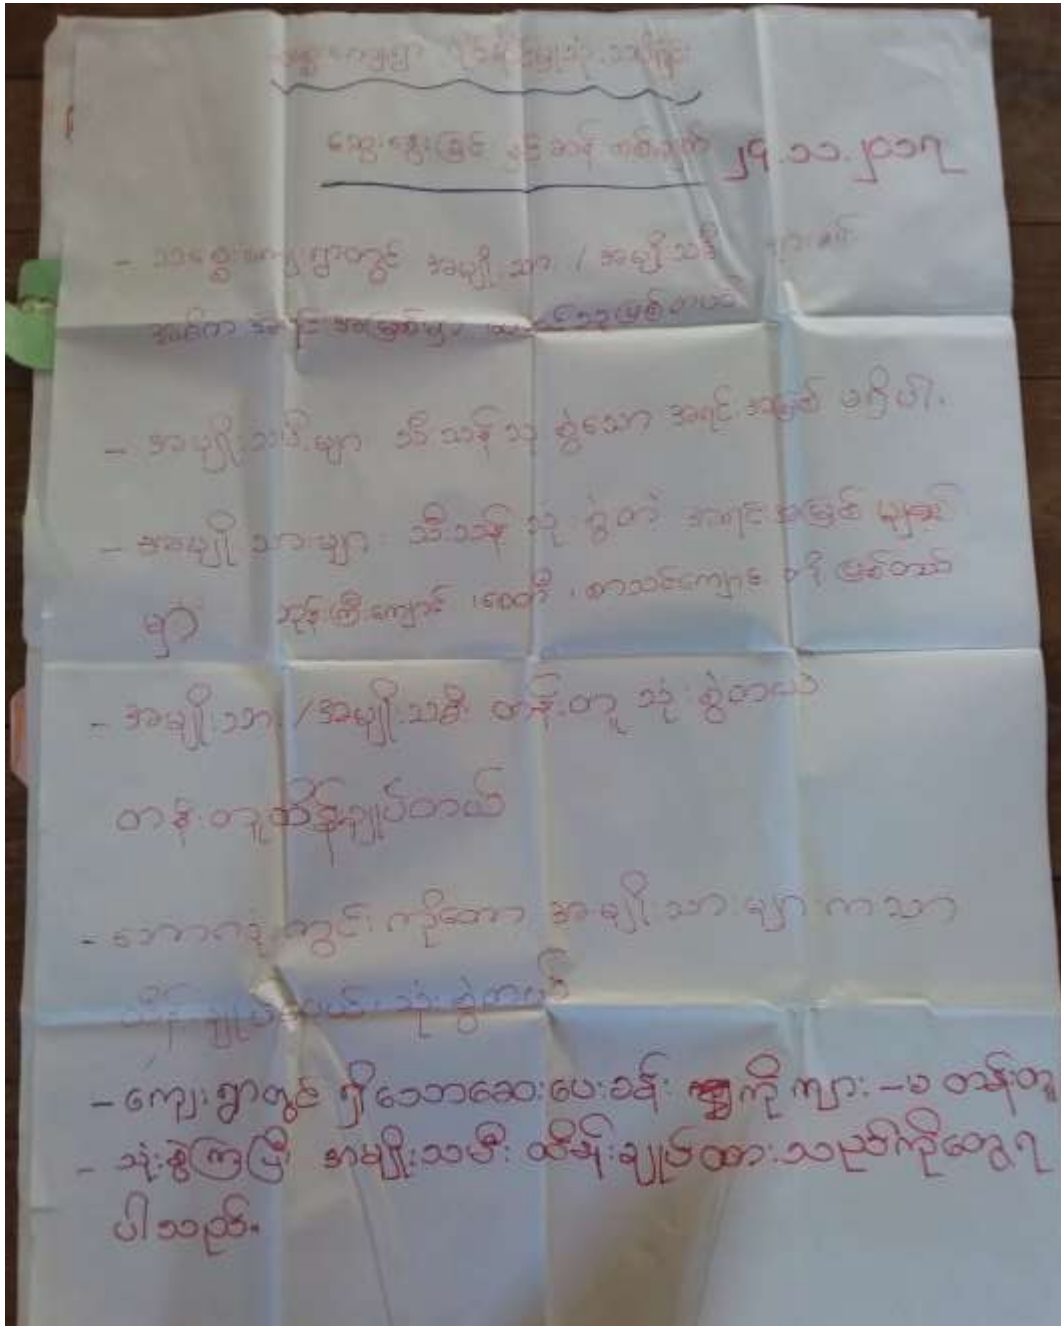 ဆွေးနွေးခြင်း ၂၄.၁၁.၂၀၁၇
- သရွေးကျေးရွာတွင် အမျိုးသား / အမျိုးသမီး များ၏
အဓိက အရင်းအမြစ်မှာ
- အမျိုးသမီးများ သီးသန့် သုံးစွဲသော အရင်းအမြစ် မရှိပါ။
- အမျိုးသားများ သီးသန့် သုံးစွဲတဲ့ အရင်းအမြစ် များ
မှာ ဘုန်းကြီးကျောင်း ၊ စေတီ ၊ စာသင်ကျောင်း တို့ ဖြစ်တယ်
- အမျိုးသား /အမျိုးသမီး တန်းတူ သုံးစွဲတယ်
တန်းတူထိန်းချုပ်တယ်
- ဘောလုံးကွင်းကိုတော့ အမျိုးသားများကသာ
ထိန်းချုပ်တယ်၊ သုံးစွဲတယ်
- ကျေးရွာတွင် ရှိသောဆေးပေးခန်း ကို ကျား -မ တန်းတူ
- သုံးစွဲကြပြီး အမျိုးသမီး ထိန်းချုပ်ထားသည်ကိုတွေ့ရ
ပါသည်။